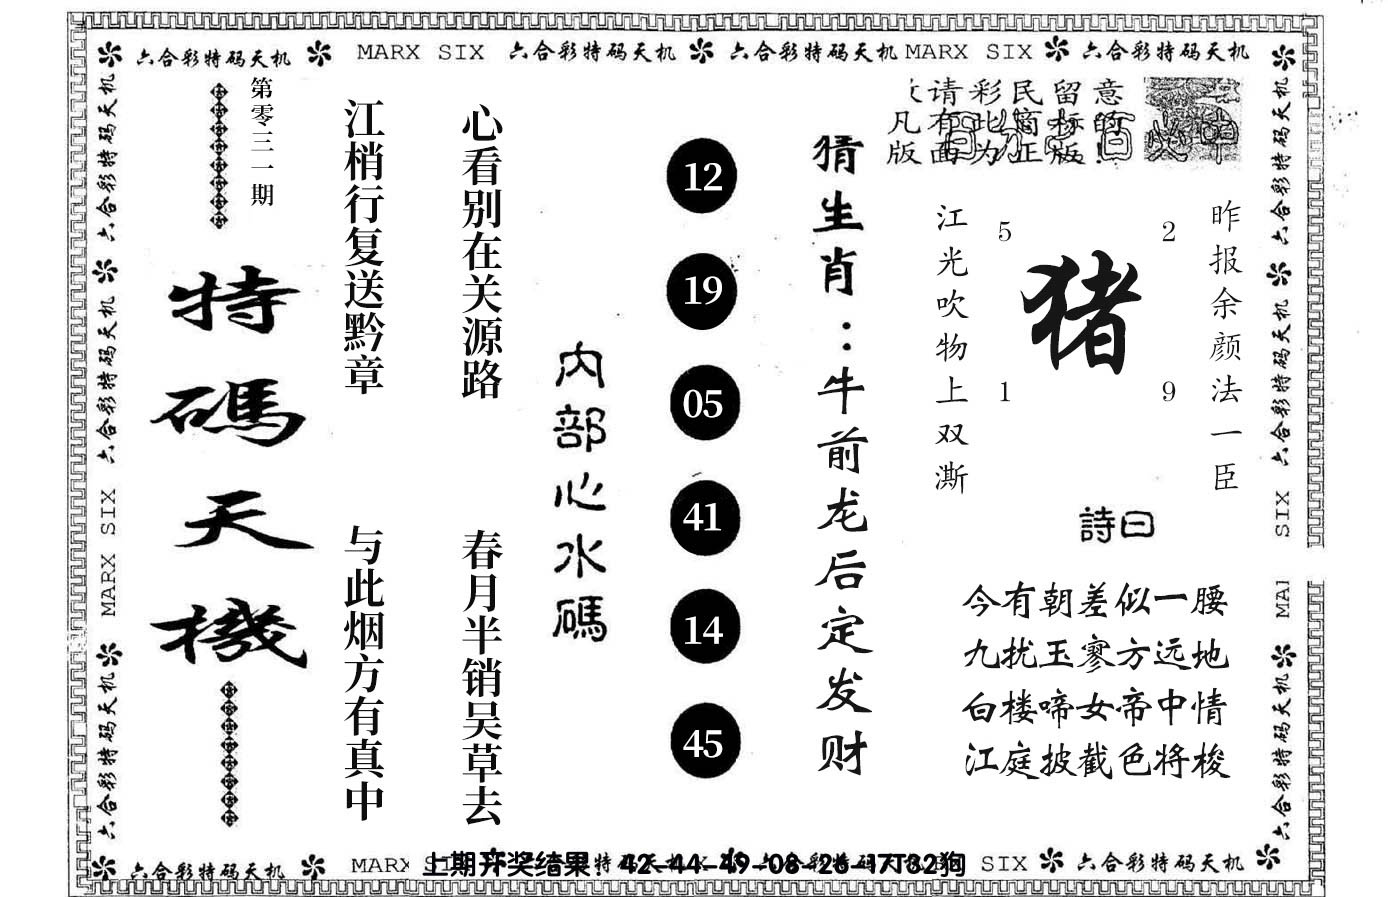 六合彩特码天机 MARX SIX 六合彩特码天机 六合彩特码天机 MARX SIX 六合彩特码天机
六合彩特码天机
六合彩特码天机
MARX SIX
六合彩特码天机
第零三一期
特碼天機
江梢行复送黔章
与此烟方有真中
心看别在关源路
春月半销吴草去
内部心水碼
12
19
05
41
14
45
猜生肖：牛前龙后定发财
请彩民留意
凡有此商标的
版面为正版!
昨报余颜法一臣
5 2
猪
1 9
江光吹物上双澌
詩曰
今有朝差似一腰
九扰玉寥方远地
白楼啼女帝中情
江庭披截色将梭
六合彩特码天机
六合彩特码天机
SIX
MAI
六合彩特码天机
六合彩特码天机 MARX
上期开奖结果：42-44-49-08-26-17T32狗
SIX 六合彩特码天机